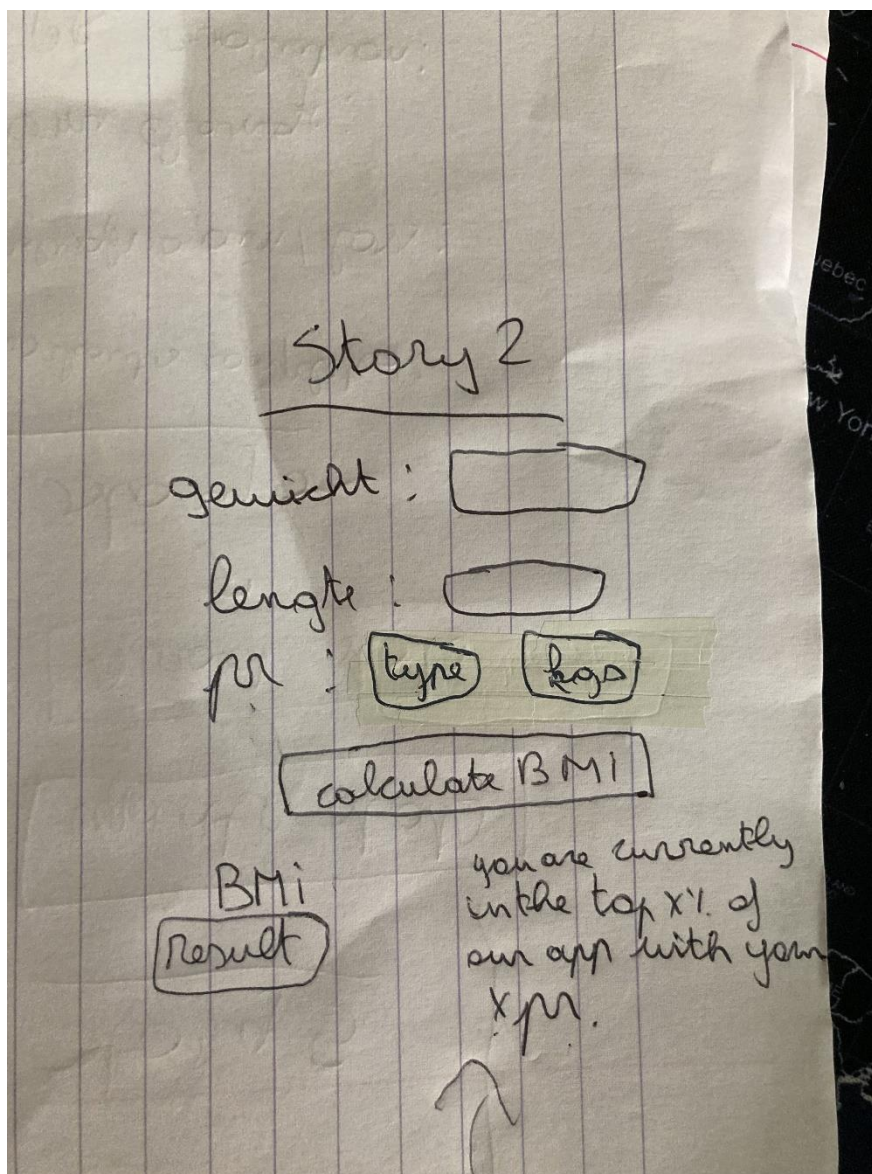 Story 2
gewicht :
lengte :
pr : type kgs
calculate BMI
BMi
result
you are currently
in the top x% of
our app with your
x pr.
uebec
w Yor